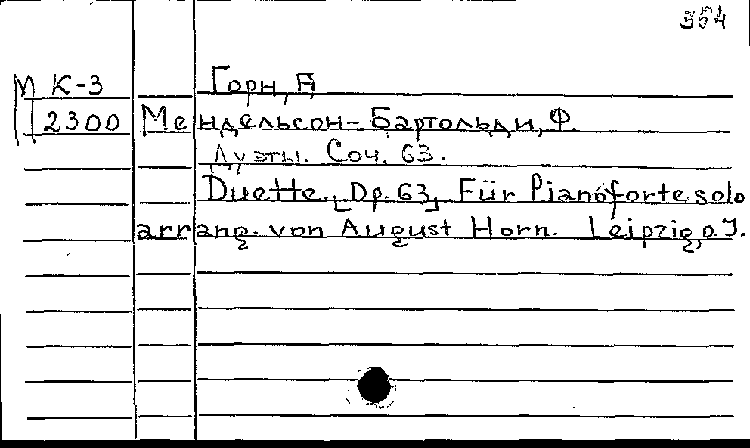 354
М К-3 Горн, А
2300 Мендельсон-Бартольди, Ф.
Дуэты. Соч. 63.
Duette [Op. 63] Für Pianoforte solo
arrang. von August Horn. Leipzig, o. J.